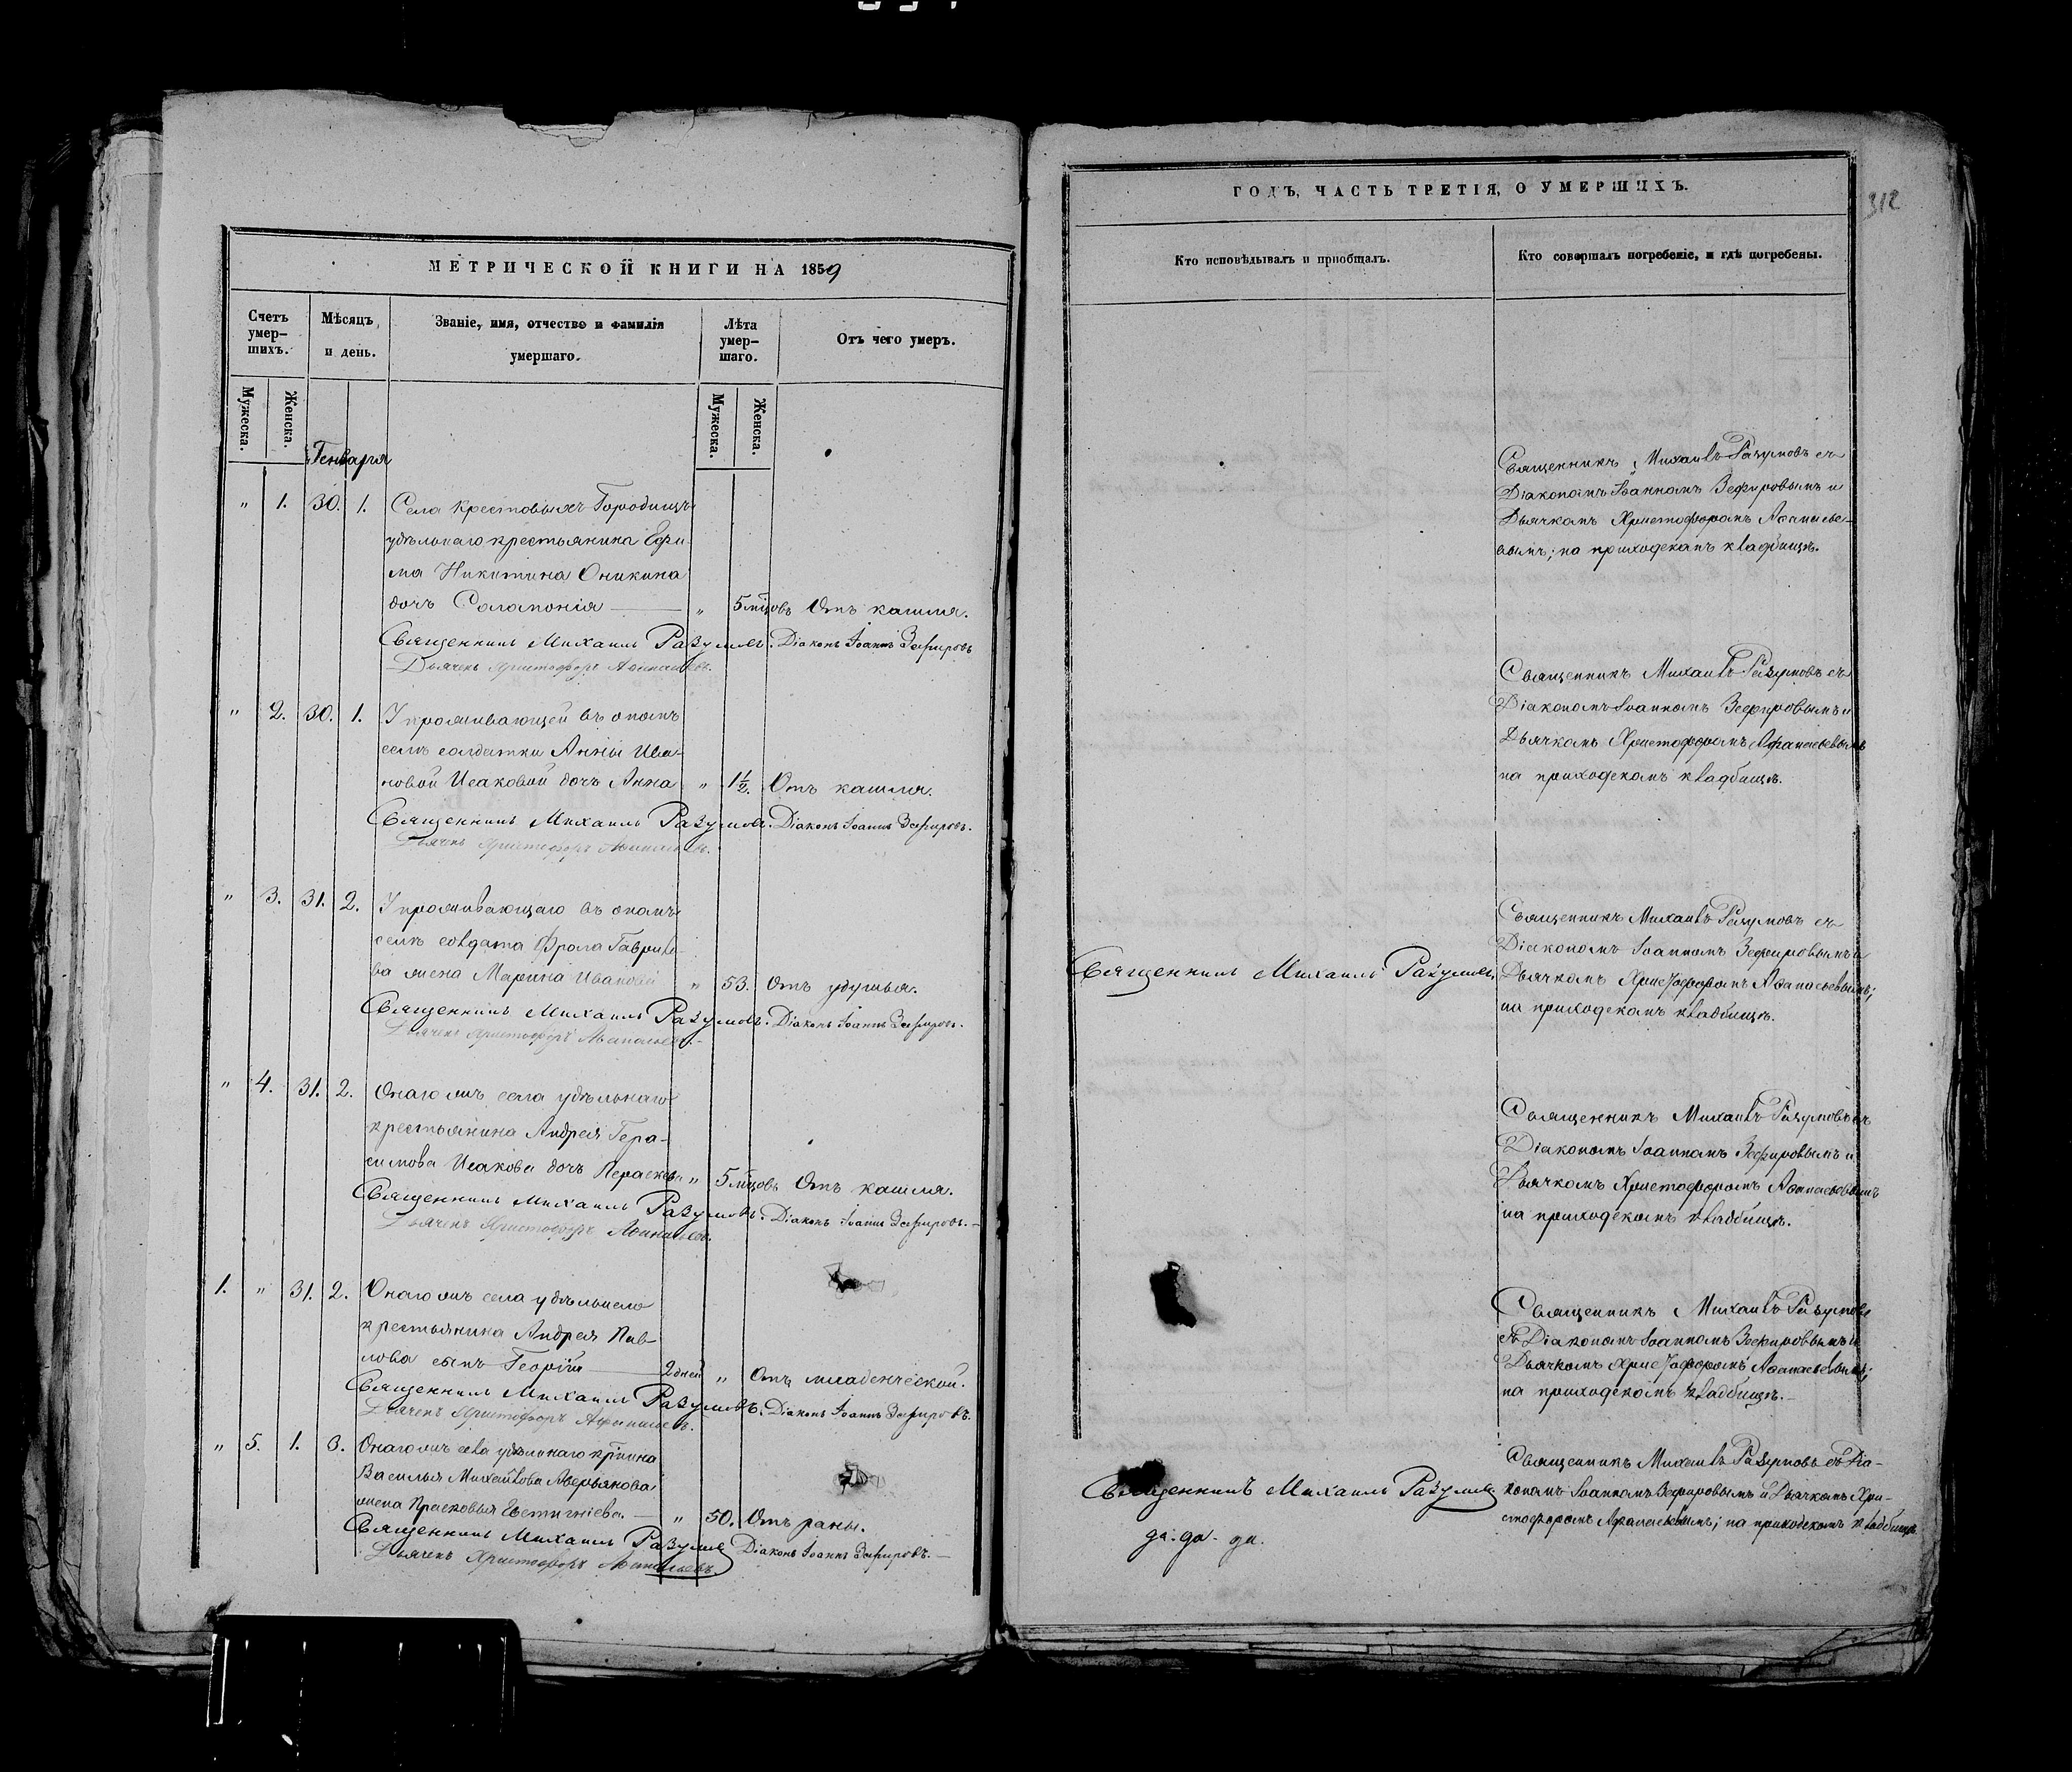 МЕТРИЧЕСКОЙ КНИГИ НА 1859
Счетъ умер-шихъ.
Мѣсяцъ и день.
Званіе, имя, отчество и фамилія умершаго.
Лѣта умер-шаго.
Отъ чего умеръ.
Мужеска.
Женска.
Мужеска.
Женска.
Генваря
" 1. 30. 1. Села Крестовыхъ Городищъ
удѣльнаго крестьянина Ефи-
ма Никитина Оникина
дочь Саламонія " 5 мцовъ Отъ кашля.
Священникъ Михаилъ Разумовъ. Діаконъ Іоаннъ Зефировъ
Дьячекъ Христофоръ Афанасьевъ.
" 2. 30. 1. У проживающей въ ономъ
селѣ солдатки Анны Ива-
новой Исаковой дочь Анна " 1½. Отъ кашля.
Священникъ Михаилъ Разумовъ. Діаконъ Іоаннъ Зефировъ.
Дьячекъ Христофоръ Афанасьевъ.
" 3. 31. 2. У проживающаго въ ономъ
селѣ солдата Фрола Гаврило-
ва жена Марина Иванова " 53. Отъ удушья.
Священникъ Михаилъ Разумовъ. Діаконъ Іоаннъ Зефировъ.
Дьячекъ Христофоръ Афанасьевъ.
" 4. 31. 2. Онаго жъ села удѣльнаго
крестьянина Андрея Гера-
симова Исакова дочь Параскева " 5 мцовъ Отъ кашля.
Священникъ Михаилъ Разумовъ. Діаконъ Іоаннъ Зефировъ.
Дьячекъ Христофоръ Афанасьевъ.
1. " 31. 2. Онаго жъ села удѣльнаго
крестьянина Андрея Пав-
лова сынъ Георгій 2 дней " Отъ младенческой.
Священникъ Михаилъ Разумовъ. Діаконъ Іоаннъ Зефировъ.
Дьячекъ Христофоръ Афанасьевъ.
" 5. 1. 3. Онаго жъ села удѣльнаго крѣнина
Василья Михайлова Аверьянова
жена Прасковья Евстигніева. " 50. Отъ раны.
Священникъ Михаилъ Разумовъ Діаконъ Іоаннъ Зефировъ.
Дьячекъ Христофоръ Афанасьевъ.
ГОДЪ, ЧАСТЬ ТРЕТІЯ, О УМЕРШИХЪ.
312
Кто исповѣдывалъ и пріобщалъ.
Кто совершалъ погребеніе, и гдѣ погребены.
Священникъ Михаилъ Разумовъ съ
Діакономъ Іоанномъ Зефировымъ и
Дьячкомъ Христофоромъ Афанасье-
вымъ; на приходскомъ кладбищѣ.
Священникъ Михаилъ Разумовъ съ
Діакономъ Іоанномъ Зефировымъ и
Дьячкомъ Христофоромъ Афанасьевымъ
на приходскомъ кладбищѣ.
Священникъ Михаилъ Разумовъ съ
Діакономъ Іоанномъ Зефировымъ и
Священникъ Михаилъ Разумовъ
Дьячкомъ Христофоромъ Афанасьевымъ;
на приходскомъ кладбищѣ.
Священникъ Михаилъ Разумовъ съ
Діакономъ Іоанномъ Зефировымъ и
Дьячкомъ Христофоромъ Афанасьевымъ
на приходскомъ кладбищѣ.
Священникъ Михаилъ Разумовъ
съ Діакономъ Іоанномъ Зефировымъ и
Дьячкомъ Христофоромъ Афанасьевымъ;
на приходскомъ кладбищѣ.
Священникъ Михаилъ Разумовъ съ Діа-
Священникъ Михаилъ Разумовъ
кономъ Іоанномъ Зефировымъ и Дьячкомъ Хри-
стофоромъ Афанасьевымъ; на приходскомъ кладбищѣ
да. да. да.